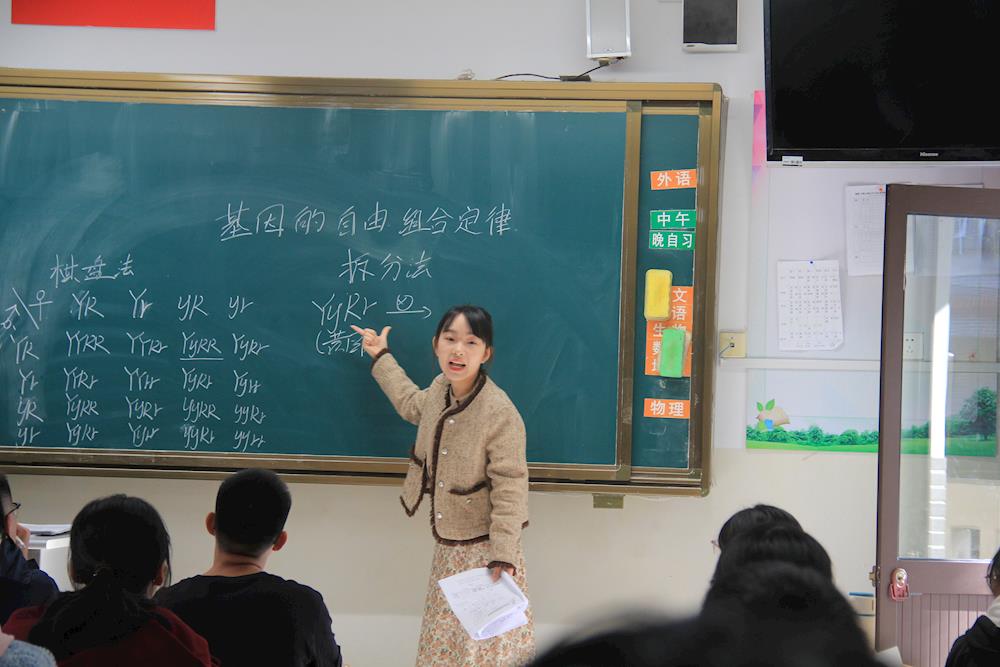 基因的自由组合定律
棋盘法
拆分法
♂ ♀ YR Yr yR yr
YR YYRR YYRr YyRR YyRr
Yr YYRr YYrr YyRr Yyrr
yR YyRR YyRr yyRR yyRr
yr YyRr Yyrr yyRr yyrr
YyRr
外语
中午
晚自习
物理
Hisense